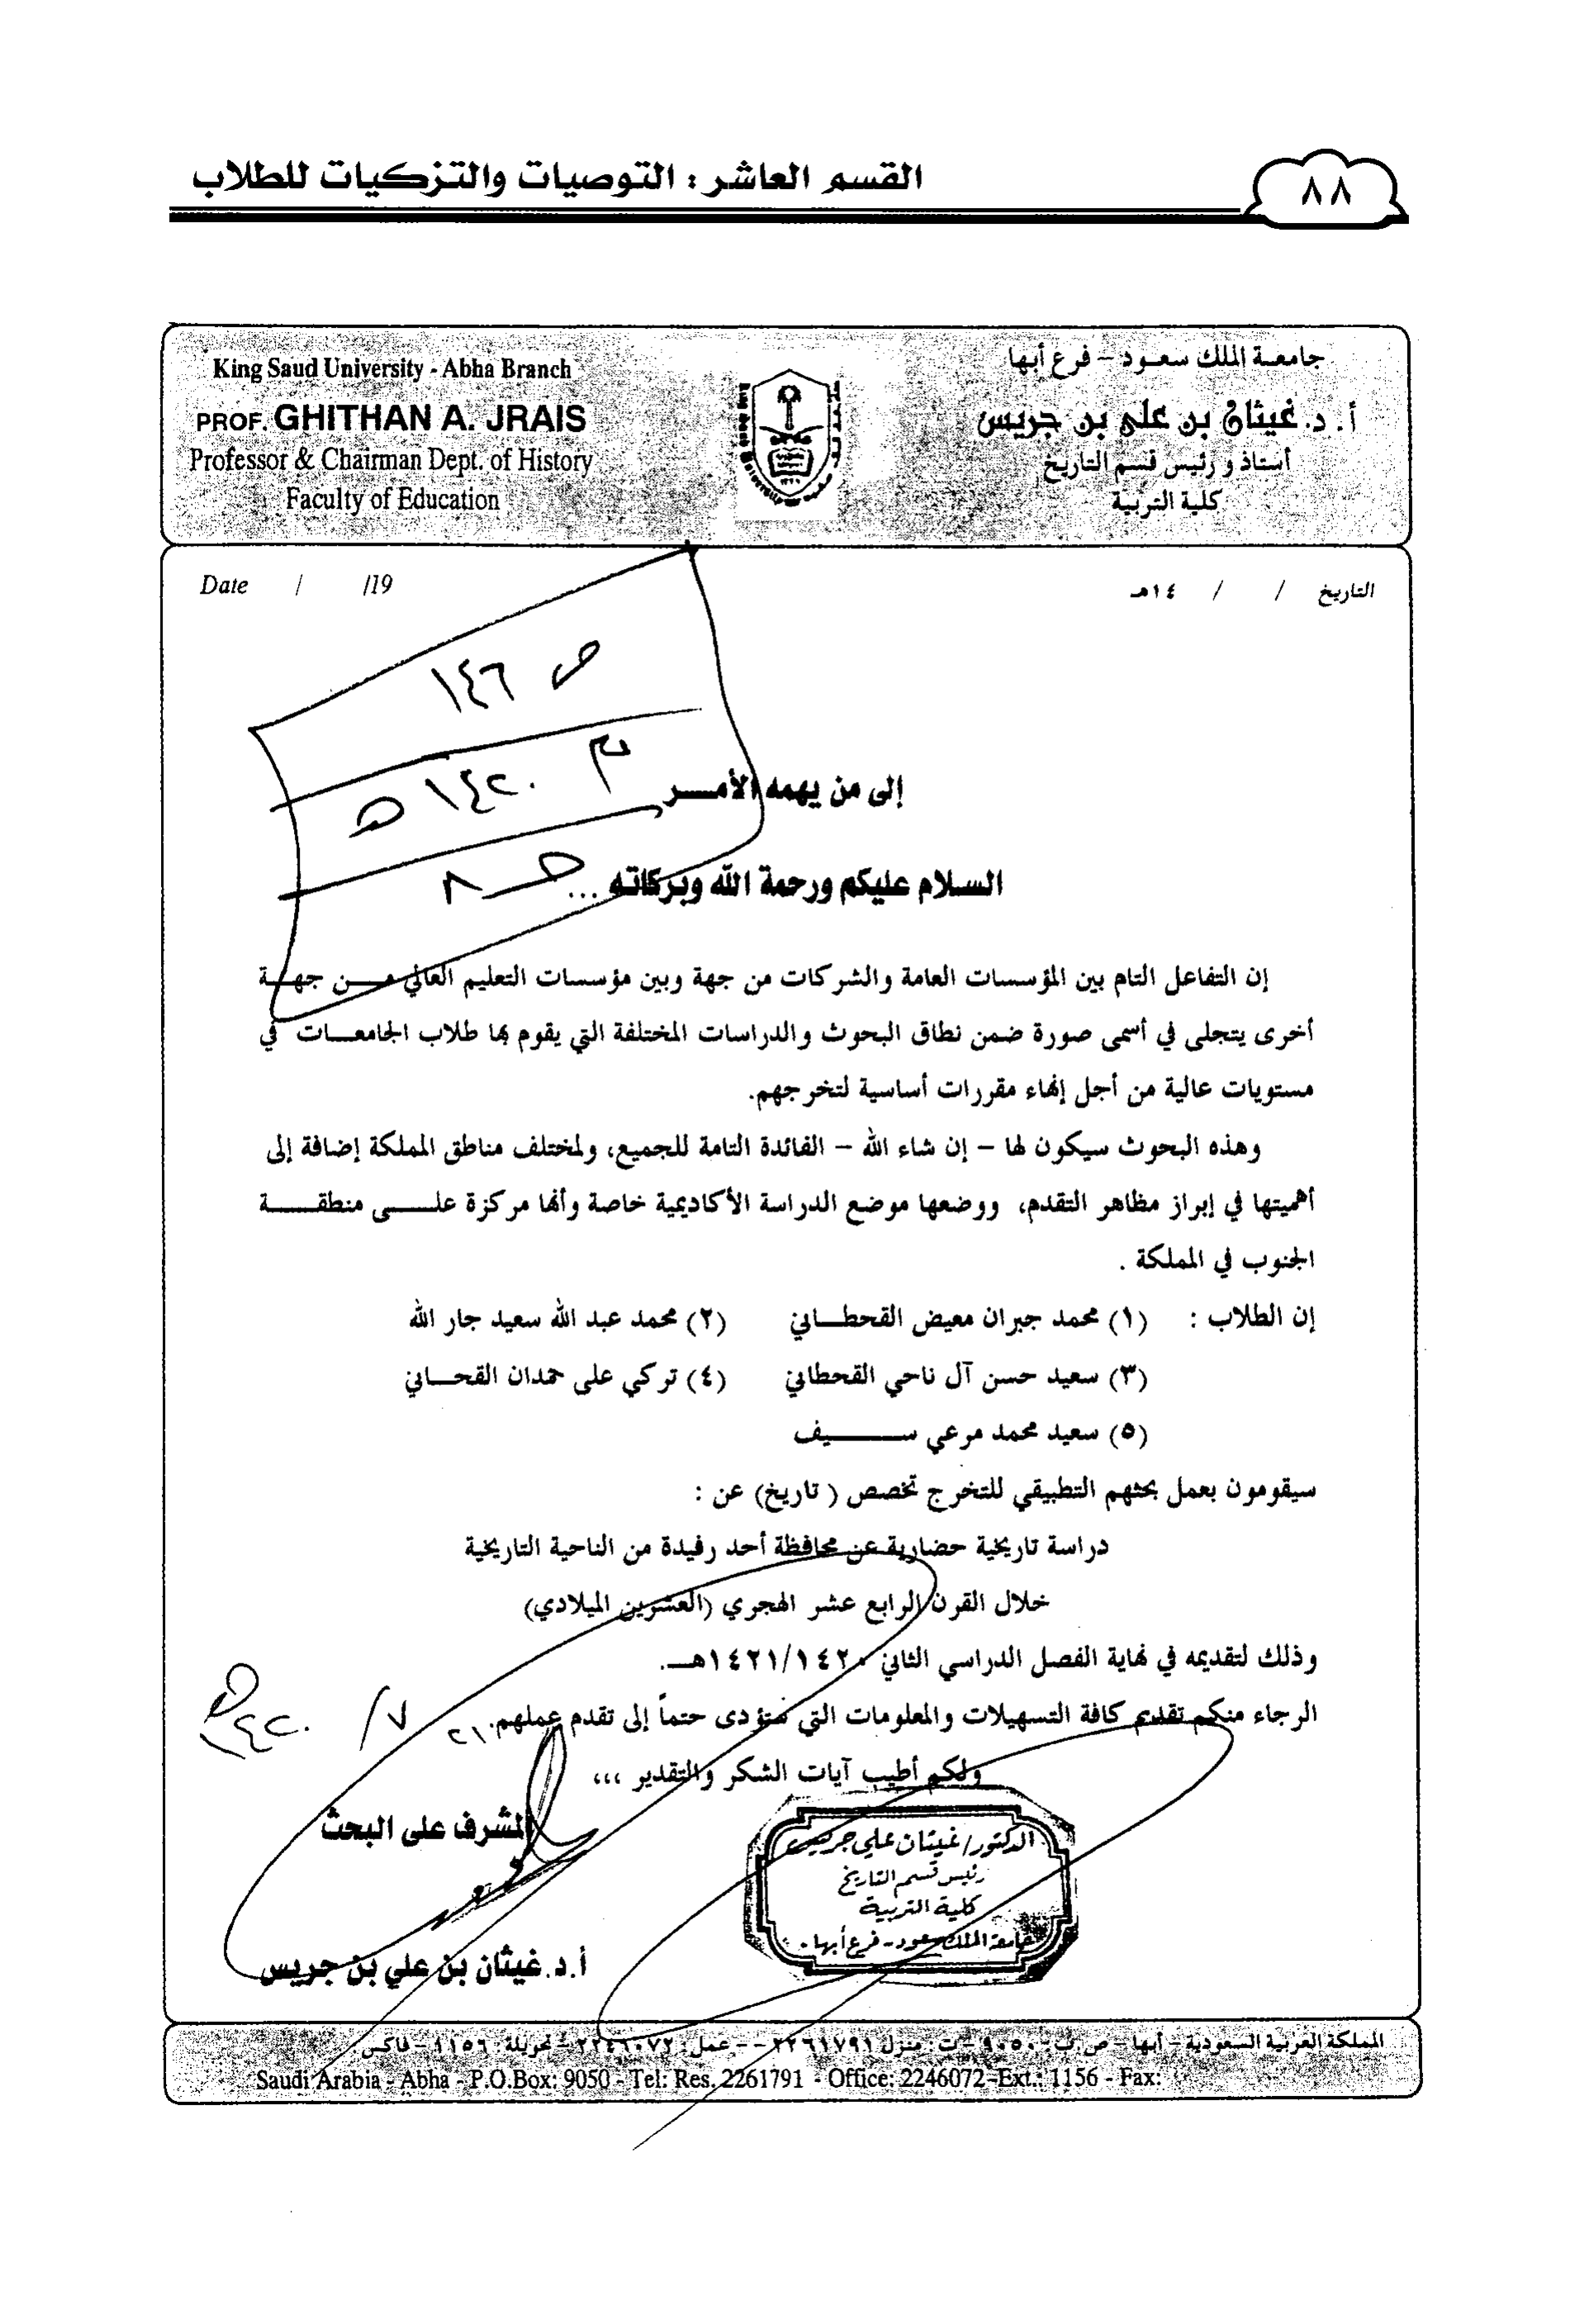 القسم العاشر : التوصيات والتزكيات للطلاب
٨٨
King Saud University - Abha Branch
PROF. GHITHAN A. JRAIS
Professor & Chairman Dept. of History
Faculty of Education
جامعة الملك سعود – فرع أبها
أ. د. غيثان بن علي بن جريس
أستاذ و رئيس قسم التاريخ
كلية التربية
Date / /19
التاريخ / / ١٤هـ
ص ١٤٦
م ١٤٢٠ هـ
حـ ٨
إلى من يهمه الأمـــر
السلام عليكم ورحمة الله وبركاته ...
إن التفاعل التام بين المؤسسات العامة والشركات من جهة وبين مؤسسات التعليم العالي مـــن جهـــة
أخرى يتجلى في أسمى صورة ضمن نطاق البحوث والدراسات المختلفة التي يقوم بها طلاب الجامعـــات في
مستويات عالية من أجل إنهاء مقررات أساسية لتخرجهم.
وهذه البحوث سيكون لها – إن شاء الله – الفائدة التامة للجميع، ولمختلف مناطق المملكة إضافة إلى
أهميتها في إبراز مظاهر التقدم، ووضعها موضع الدراسة الأكاديمية خاصة وأنها مركزة علـــى منطقـــة
الجنوب في المملكة .
إن الطلاب : (١) محمد جبران معيض القحطـــاني (٢) محمد عبد الله سعيد جار الله
(٣) سعيد حسن آل ناحي القحطاني (٤) تركي على حمدان القحـــاني
(٥) سعيد محمد مرعي ســـــيف
سيقومون بعمل بحثهم التطبيقي للتخرج تخصص ( تاريخ) عن :
دراسة تاريخية حضارية عن محافظة أحد رفيدة من الناحية التاريخية
خلال القرن الرابع عشر الهجري (العشرين الميلادي)
وذلك لتقديمه في نهاية الفصل الدراسي الثاني ١٤٢١/١٤٢٠هـــ.
الرجاء منكم تقديم كافة التسهيلات والمعلومات التي ستؤدى حتماً إلى تقدم عملهم.
٢١ /٧ ١٤٢٠هـ
ولكم أطيب آيات الشكر والتقدير ،،،
المشرف على البحث
الدكتور/ غيثان علي جريس
رئيس قسم التاريخ
كلية التربية
جامعة الملك سعود - فرع أبها
أ.د. غيثان بن علي بن جريس
المملكة العربية السعودية – أبها – ص.ب: ٩٠٥٠ – ت: منزل ٢٢٦١٧٩١ – عمل: ٢٢٤٦٠٧٢ – تحويلة: ١١٥٦ – فاكس:
Saudi Arabia - Abha - P.O.Box: 9050 - Tel: Res. 2261791 - Office: 2246072-Ext.: 1156 - Fax: